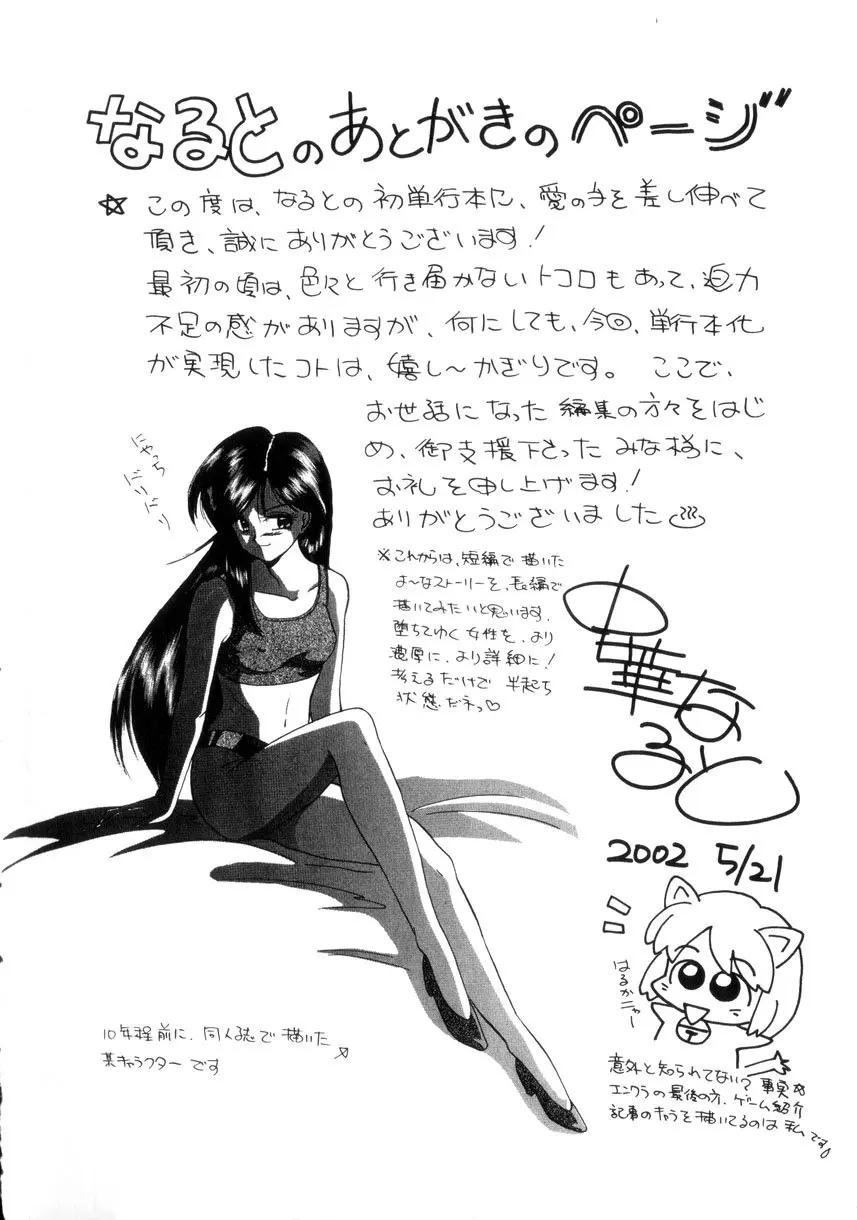 なるとのあとがきのページ
☆ この度は、なるとの初単行本に、愛の手を差し伸べて
頂き、誠にありがとうございます!
最初の頃は、色々と行き届かないトコロもあって、迫力
不足の感がありますが、何にしても、今回、単行本化
が実現したコトは、嬉し〜かぎりです。ここで、
お世話になった編集の方々をはじ
め、御支援下さったみな様に、
お礼を申し上げます!
ありがとうございました
※これからは、短編で描いた
よ〜なストーリーを、長編で
描いてみたいと思います。
堕ちてゆく女性を、より
濃厚に、より詳細に!
考えるだけで半起ち
状態だネっ♡
にゃっち
どりどり
華なると
2002 5/21
はるかニャー
10年程前に、同人誌で描いた
某キャラクターです
意外と知られてない?事実☆
エンクラの最後の方、ゲーム紹介
記事のキャラを描いてるのは私です。